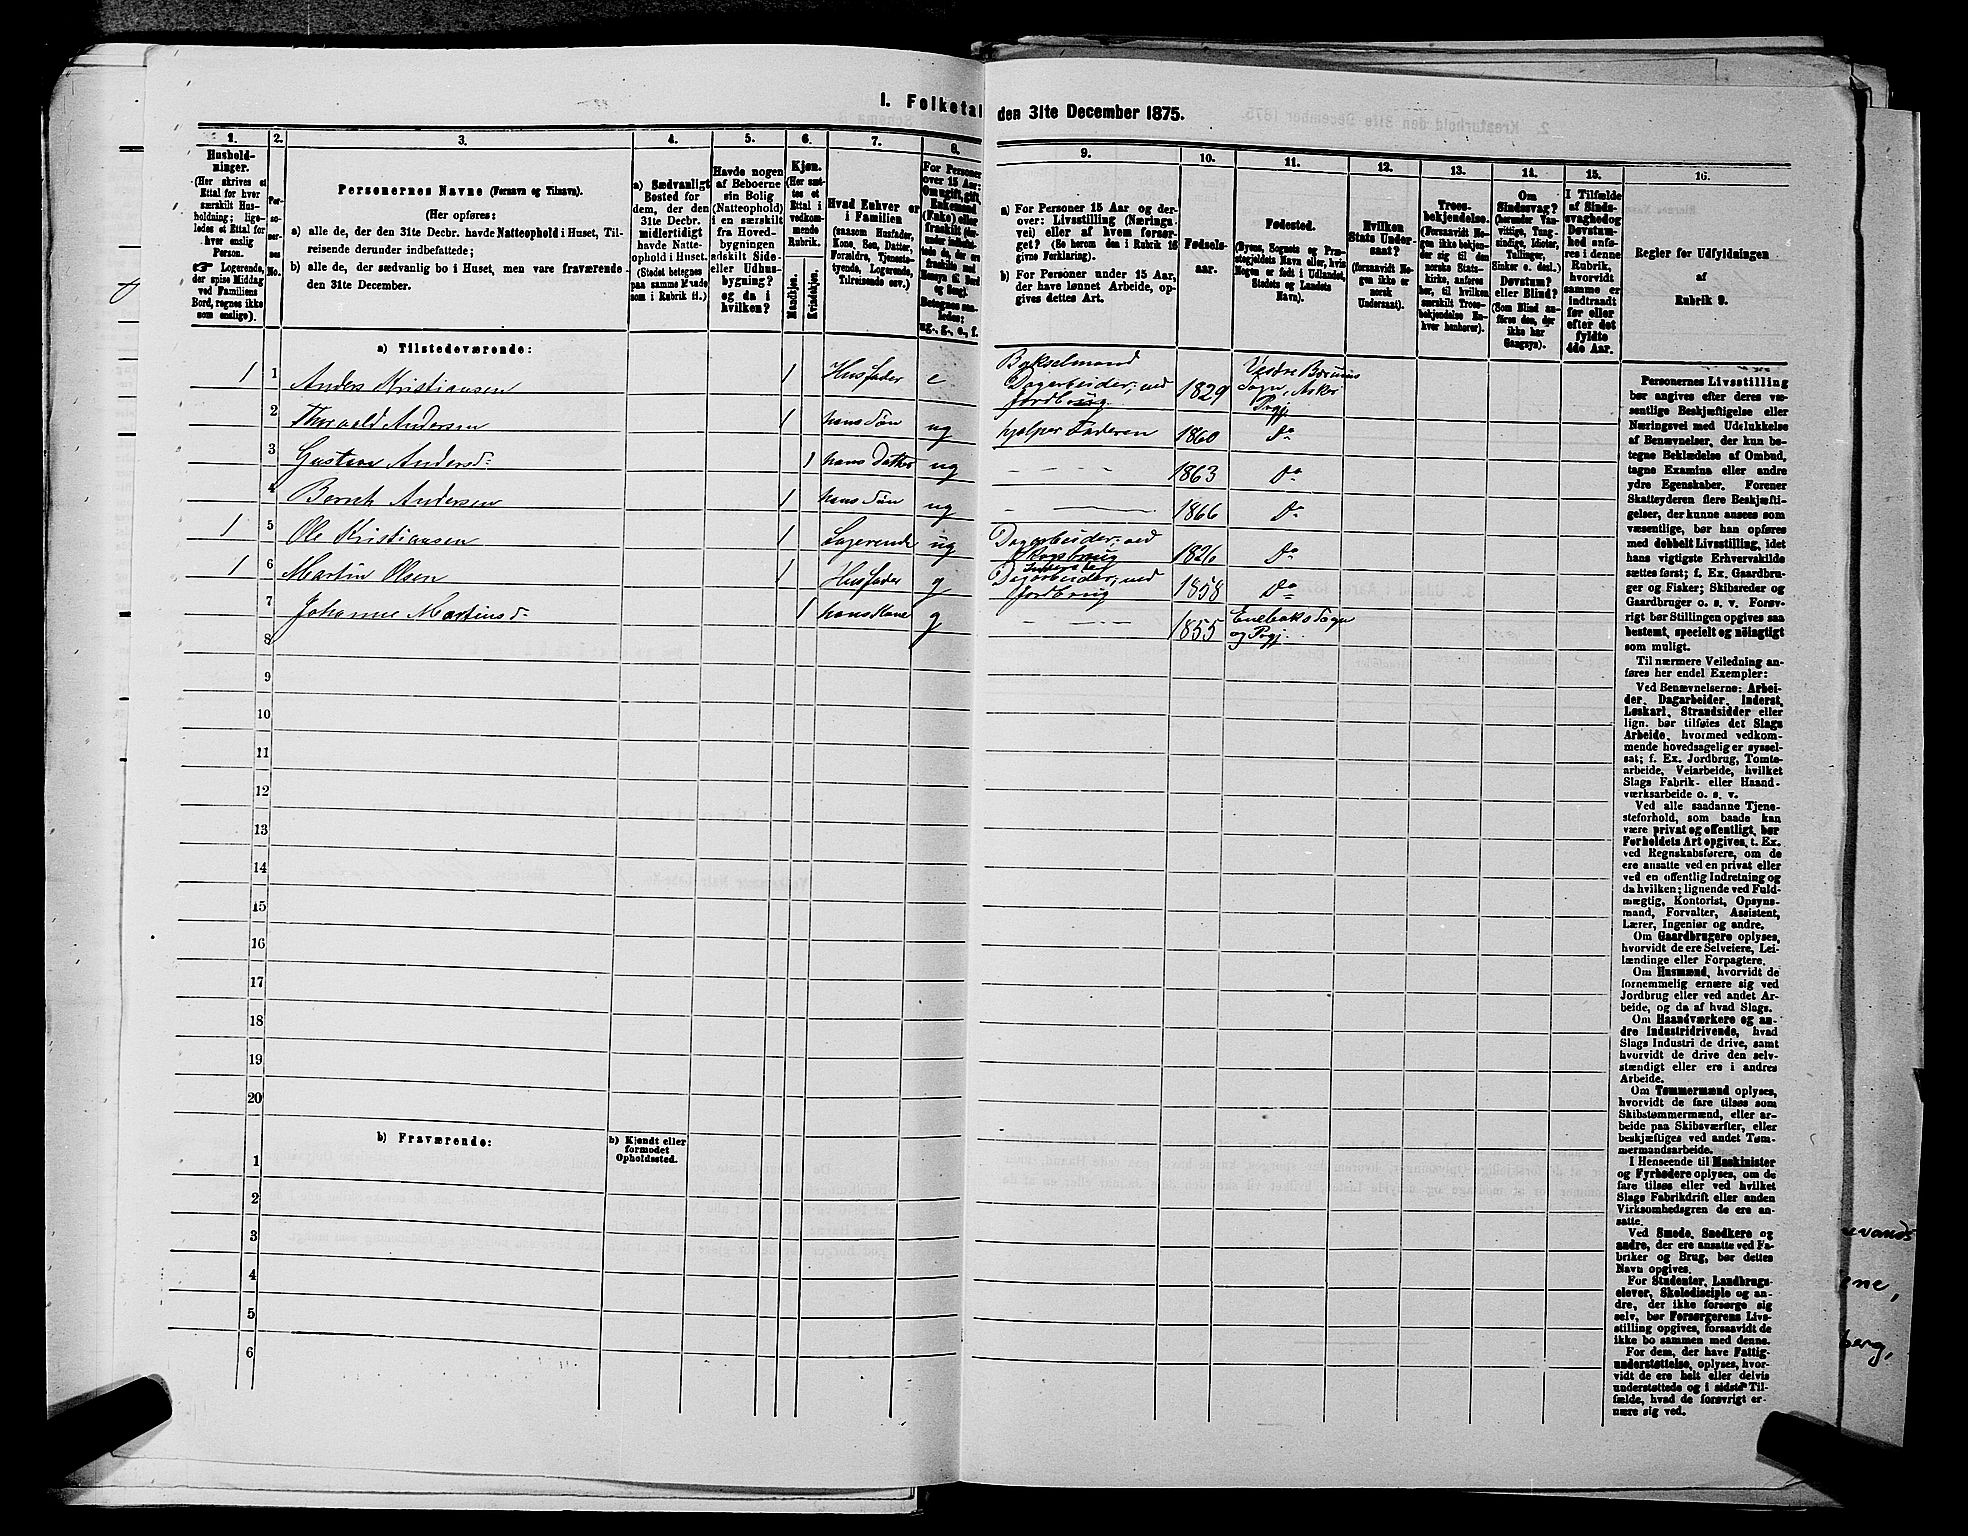 1. Folketal den 31te December 1875.
1.
Hushold-
ninger.
(Her skrives et
Ettal for hver
særskilt Hus-
holdning; lige-
ledes et Ettal for
hver enslig
Person.
☞ Logerende,
der spise Middag
ved Familiens
Bord, regnes ikke
som enslige).
2.
Per-
so-
ner-
nes
No.
3.
Personernes Navne (Fornavn og Tilnavn).
(Her opføres:
a) alle de, der den 31te Decbr. havde Natteophold i Huset, Til-
reisende derunder indbefattede;
b) alle de, der sædvanlig bo i Huset, men vare fraværende
den 31te December.
4.
a) Sædvanligt
Bosted for
dem, der den
31te Decbr.
midlertidigt
havde Natte-
ophold i Huset.
(Stedet betegnes
paa samme Maade
som i Rubrik 11.)
5.
Havde nogen
af Beboerne
sin Bolig
(Natteophold)
i en særskilt
fra Hoved-
bygningen
adskilt Side-
eller Udhus-
bygning?
og da i
hvilken?
6.
Kjøn.
(Her sæt-
tes et
Ettal i
vedkom-
mende
Rubrik.
Mandkjøn.
Kvindekjøn.
7.
Hvad Enhver er
i Familien
(saasom Husfader,
Kone, Søn, Datter,
Forældre, Tjeneste-
tyende, Logerende,
Tilreisende osv.)
8.
For Personer
over 15 Aar:
Om ugift, gift,
Enkemand
(Enke) eller
fraskilt
Betegnes saa-
ledes:
ug., g., e., f.
9.
a) For Personer 15 Aar og der-
over: Livsstilling (Nærings-
vei) eller af hvem forsør-
get? (Se herom den i Rubrik 16
givne Forklaring).
b) For Personer under 15 Aar,
der have lønnet Arbeide, op-
gives dettes Art.
10.
Fødsels-
aar.
11.
Fødested.
(Byens, Sognets og Præ-
stegjeldets Navn eller, hvis
Nogen er født i Udlandet,
Stedets og Landets
Navn).
12.
Hvilken
Stats Under-
saat?
(forsaavidt No-
gen ikke er
norsk
Undersaat).
13.
Troes-
bekjendelse.
(Forsaavidt No-
gen ikke bekjen-
der sig til den
norske Stats-
kirke, anføres
her, til hvilken
særskilt Troes-
bekjendelse En-
hver henhører).
14.
Om
Sindssvag?
(herunder Van-
vittige, Tung-
sindige, Idioter,
Tullinger,
Sinker o. desl.)
Døvstum?
eller Blind?
(Som Blind an-
føres den, der
ikke har
Gangsyn).
15.
I Tilfælde
af Sinds-
svaghed og
Døvstum-
hed anfø-
res i denne
Rubrik,
hvorvidt
samme er
indtraadt
før eller
efter det
fyldte
4de Aar.
16.
Regler for Udfyldningen
af
Rubrik 9.
a) Tilstedeværende:
1 1 Anders Kristiansen 1 Husfader e Bykselmand Dagarbeider, ved Jordbrug 1829 Vestre Bærums Sogn, Asker Prgj.
2 Thorvald Andersen 1 hans Søn ug hjælper Faderen 1860 Do
3 Gustava Andersd. 1 hans Datter ug — — — 1863 Do
4 Bernt Andersen 1 hans Søn ug — — 1866 Do
1 5 Ole Kristiansen 1 Logerende ug Dagarbeider, ved Skogsbrug 1826 Do
1 6 Martin Olsen 1 Husfader g Inderst Dagarbeider, ved Jordbrug 1858 Do
7 Johanne Martinsd. 1 hans Kone g — — — 1855 Enebaks Sogn og Prgj.
8
9
10
11
12
13
14
15
16
17
18
19
20
b) Fraværende:
b) Kjendt eller
formodet
Opholdssted.
1
2
3
4
5
6
Personernes Livsstilling
bør angives efter deres væ-
sentlige Beskjæftigelse eller
Næringsvei med Udelukkelse
af Benævnelser, der kun be-
tegne Beklædelse af Ombud,
tagne Examina eller andre
ydre Egenskaber. Forener
Skatteyderen flere Beskjæfti-
gelser, der kunne ansees som
væsentlige, bør han opføres
med dobbelt Livsstilling, idet
hans vigtigste Erhvervskilde
sættes først; f. Ex. Gaardbru-
ger og Fisker; Skibsreder og
Gaardbruger o. s. v. Forøv-
rigt bør Stillingen opgives saa
bestemt, specielt og nöiagtigt
som muligt.
Til nærmere Veiledning an-
føres her endel Exempler:
Ved Benævnelserne: Arbei-
der, Dagarbeider, Inderst,
Løskarl, Strandsidder eller
lign. bør tilføies det Slags
Arbeide, hvormed vedkom-
mende hovedsagelig er syssel-
sat; f. Ex. Jordbrug, Tomte-
arbeide, Veiarbeide, hvilket
Slags Fabrik- eller Haand-
værksarbeide o. s. v.
Ved alle saadanne Tjene-
steforhold, som baade kan
være privat og offentligt, bør
Forholdets Art opgives, t. Ex.
ved Regnskabsførere, om de
ere ansatte ved en privat eller
ved en offentlig Indretning og
da hvilken; lignende ved Fuld-
mægtig, Kontorist, Opsyns-
mand, Forvalter, Assistent,
Lærer, Ingeniør og andre.
Om Gaardbrugere oplyses,
hvorvidt de ere Selveiere, Lei-
lændinge eller Forpagtere.
Om Husmænd, hvorvidt de
fornemmelig ernære sig ved
Jordbrug eller ved andet Ar-
beide, og da af hvad Slags.
Om Haandværkere og an-
dre Industridrivende, hvad
Slags Industri de drive, samt
hvorvidt de drive den selv-
stændigt eller ere i andres
Arbeide.
Om Tømmermænd oplyses,
hvorvidt de fare tilsøs som
Skibstømmermænd, eller ar-
beide paa Skibsværfter, eller
beskjæftiges ved andet Tøm-
mermandsarbeide.
I Henseende til Maskinister
og Fyrbødere oplyses, om de
fare tilsøs eller ved hvilket
Slags Fabrikdrift eller anden
Virksomhedsgren de ere an-
satte.
Ved Smede, Snedkere og
andre, der ere ansatte ved Fa-
briker og Brug, bør dettes
Navn opgives.
For Studenter, Landbrugs-
elever, Skoledisciple og an-
dre, der ikke forsørge sig
selv, bør Forsørgerens Livs-
stilling opgives, forsaavidt de
ikke bo sammen med denne.
For dem, der have Fattig-
understøttelse, oplyses, hvor-
vidt de ere helt eller delvis
understøttede og i sidste Til-
fælde, hvad de forøvrigt er-
nære sig ved.